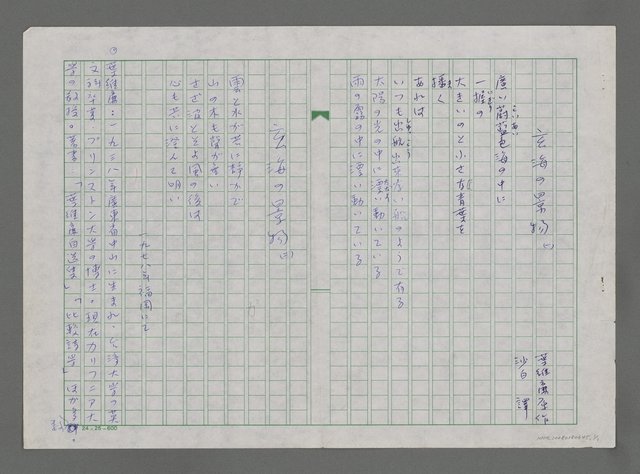 玄海の景物(一)
葉維廉原作
沙白 譯
広い蔚藍色海の中に
一握の
大きいのと小さな青葉を
播く
あれは
いつも出航出来ない船のようである
太陽の光の中に漂い動いている
雨の霧の中に漂い動いている
玄海の景物(二)
風と水が共に静かで
山の木も聲が無い
さざ波とそよ風の後は
心も共に澄んで明い
一九七八年福岡にて
葉維廉:一九三八年広東省中山に生まれ、台湾大学の英
文科卒業、プリンストン大学の博士。現在カリフォニア大
学の教授。著書:「葉維廉自選集」、「比較詩学」ほか多数。
24-25-600